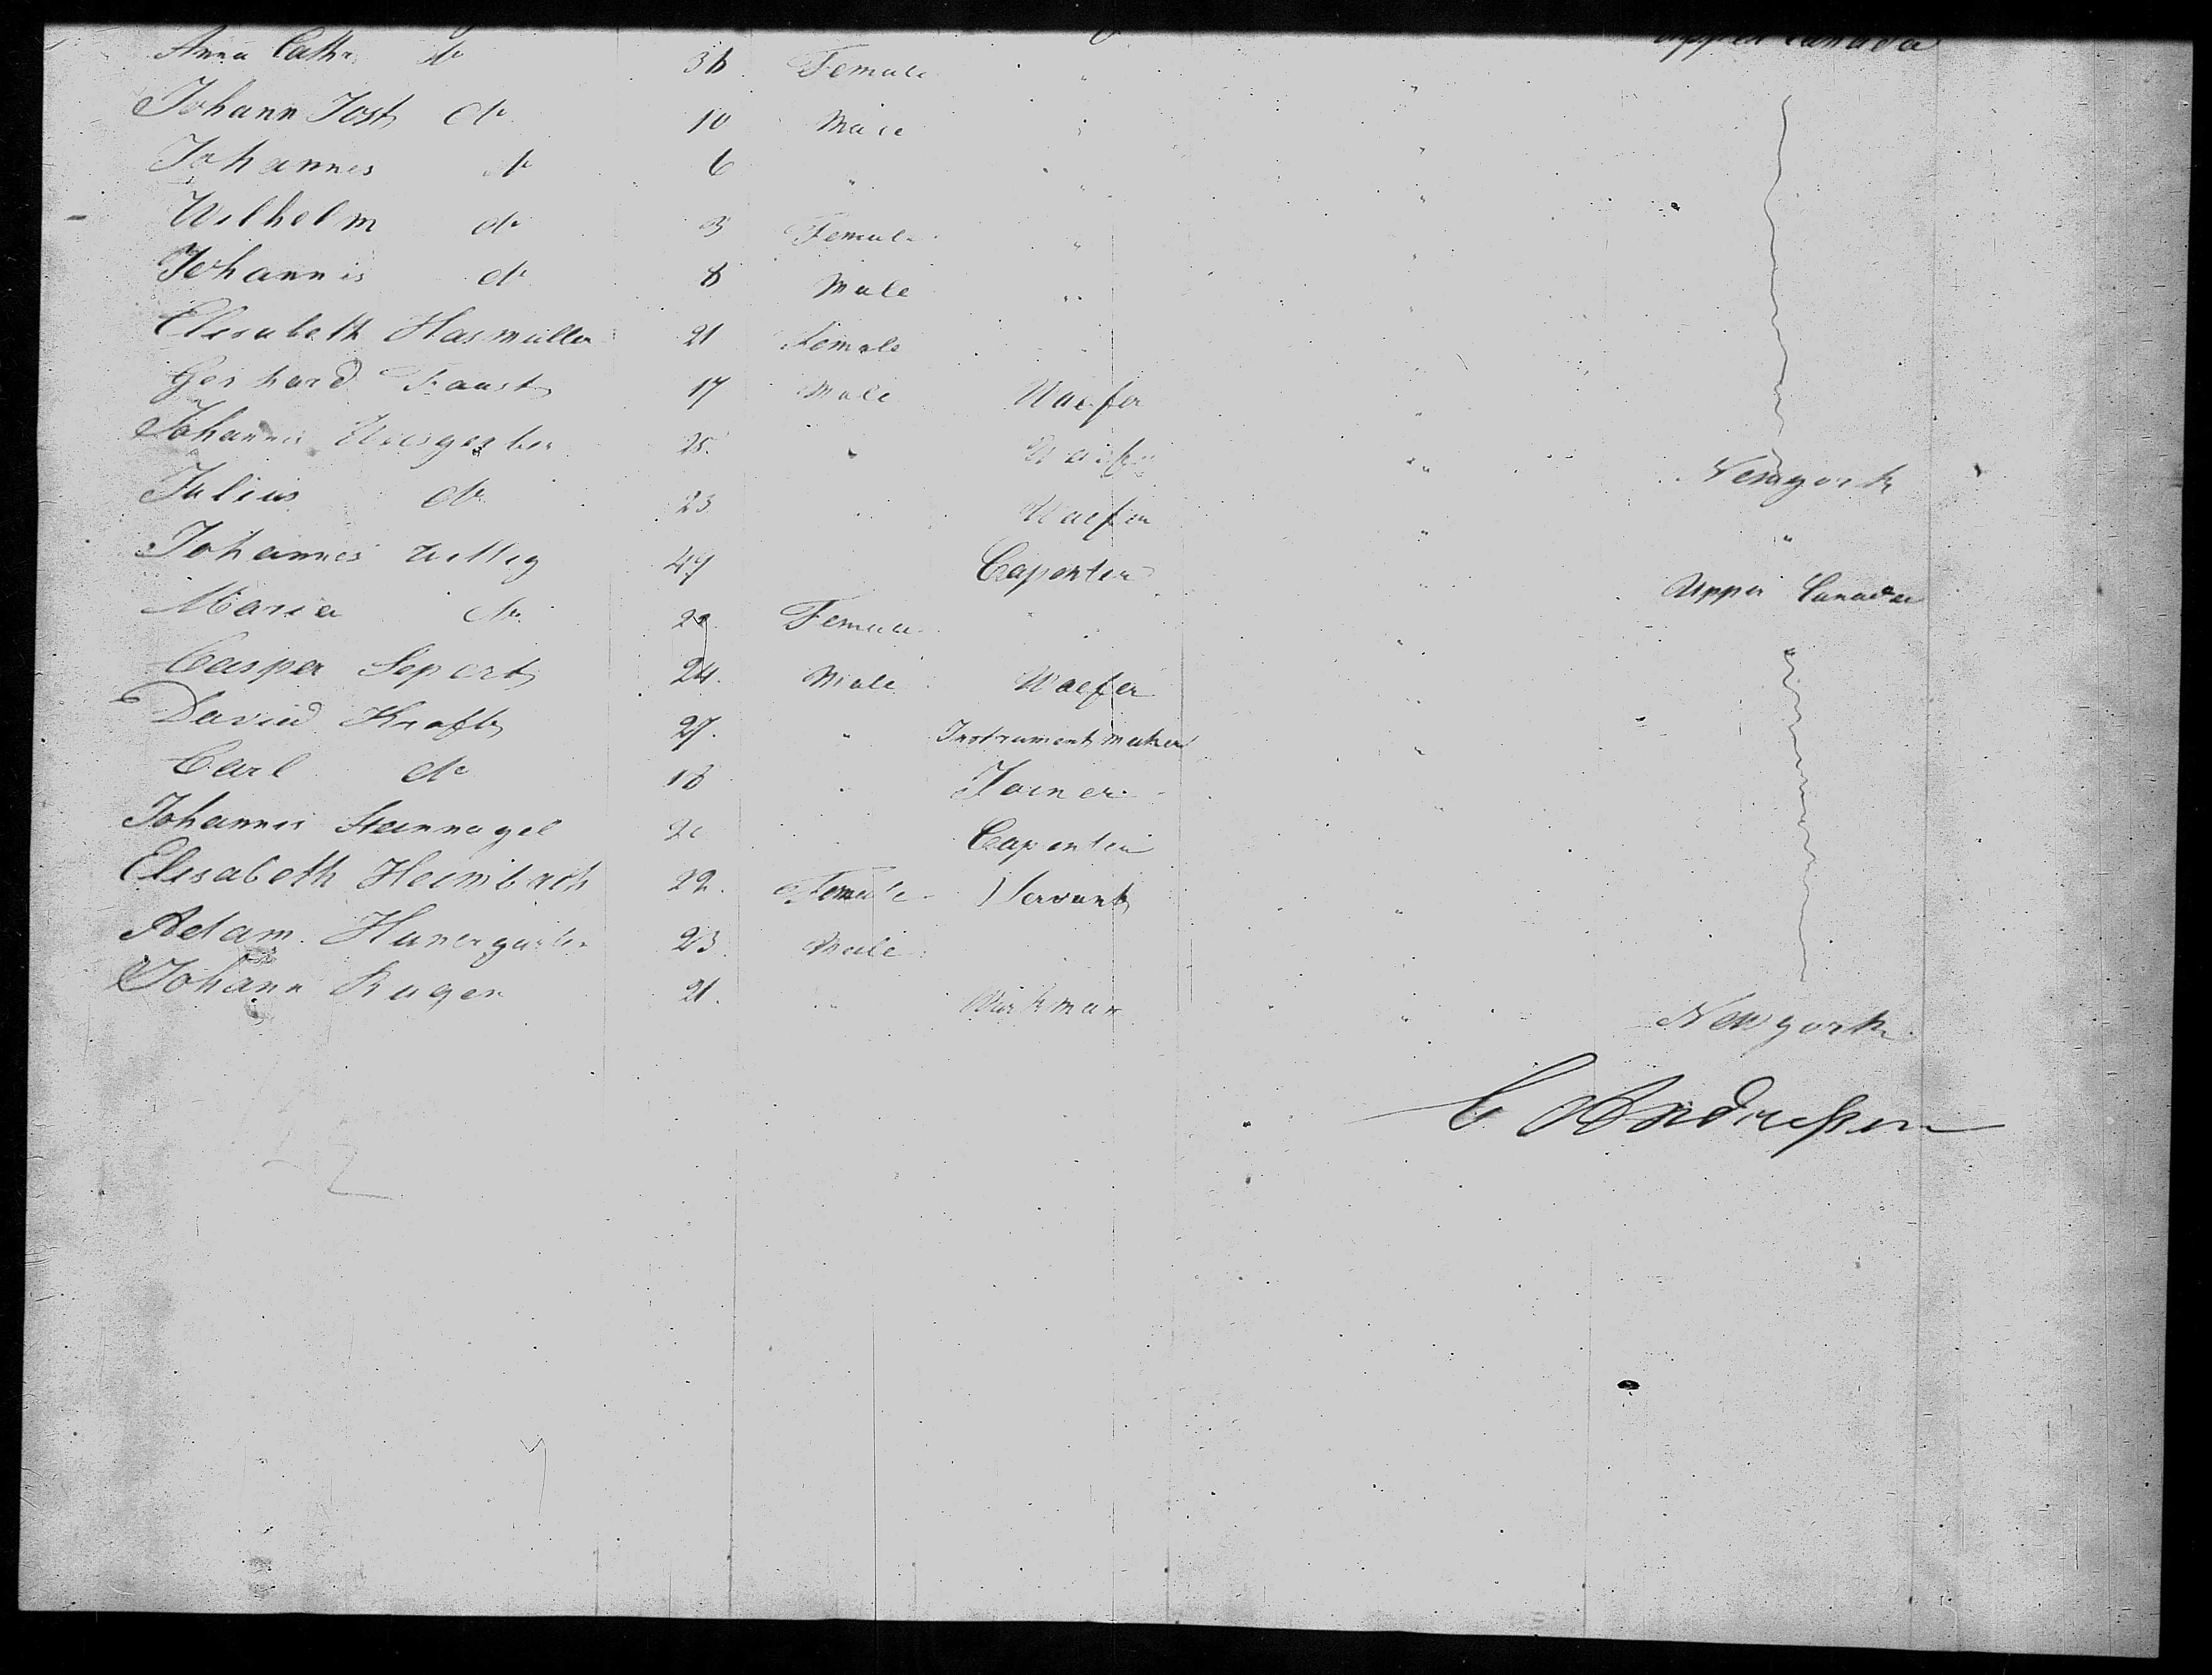 Anna Cath. do 36 Female " " Upper Canada
Johann Jost do 10 Male " "
Johannes do 6 " " "
Wilhelm do 3 Female " "
Johannis do 8 Male " "
Elisabeth Hasmuller 21 Female "
Gerhard Faust 17 Male Waefer "
Johannes 25. " " Newyork
Julius do 23 Waefer " "
Johannes 49 Caporter " Upper Canada
Maria do. Female " "
Casper Sepert 24. Male Waefer "
David Kraft 27. " Instrument maker "
Carl do 18 " Joiner "
Johannes Steinnagel Caporter
Elisabeth Heimbach 22. Female Servant "
Adam 23. Male
Johann Ruger 21. " Workman " Newyork
C Andressen